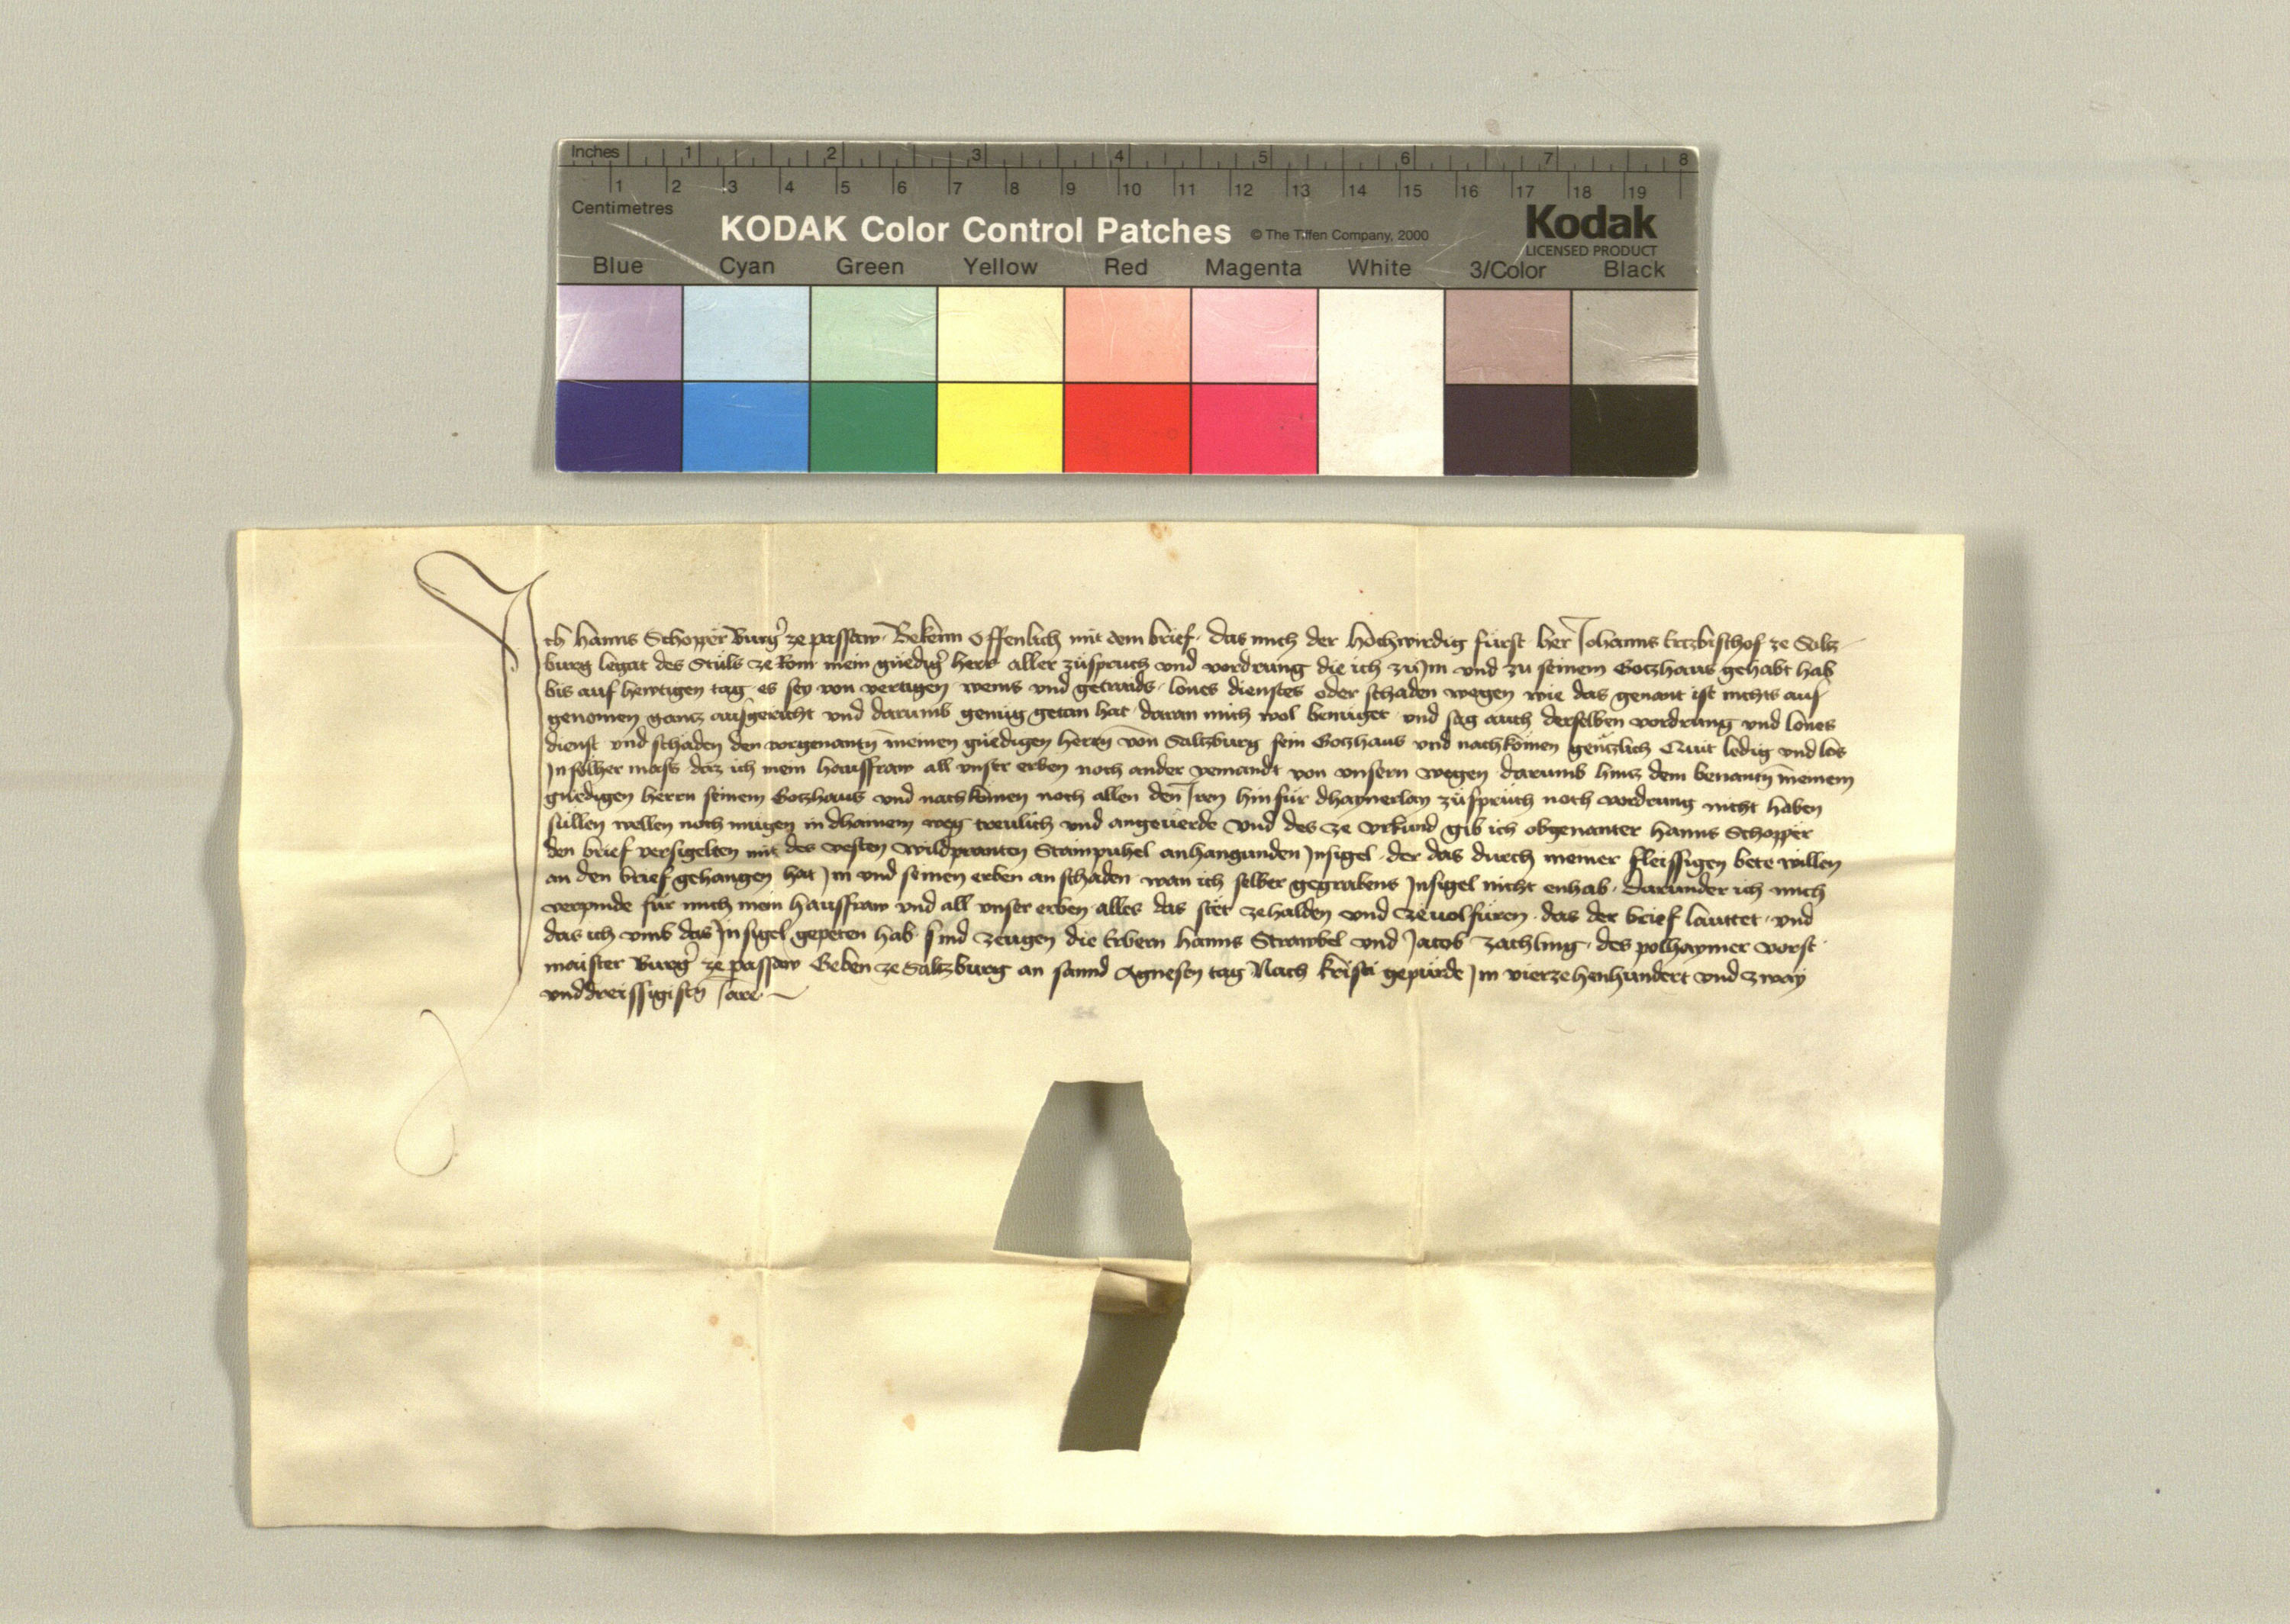 Inches 1 2 3 4 5 6 7 8
1 2 3 4 5 6 7 8 9 10 11 12 13 14 15 16 17 18 19
Centimetres
KODAK Color Control Patches © The Tiffen Company, 2000 Kodak
LICENSED PRODUCT
Blue Cyan Green Yellow Red Magenta White 3/Color Black
Ich Hanns Schopper Burg̓ ze passaw. Bekenn offenlich mit dem brief. das mich der hochwirdig fürst her Johanns Ertzbischof ze Saltz
burg legat des Stůls ze Rom mein gnedig̓ herr aller zůspruch vnd vordrung die ich zu Im vnd zu seinem Gotzhaus gehabt hab
bis auf hewtigen tag es sey von vertigen weins vnd getraids. lones dienstes oder schaden wegen wie das genant ist nichts aus
genomen gantz ausgericht vnd darumb genůg getan hat daran mich wol benůget vnd sag auch derselben vordrung vnd lones
dienst vnd schaden den vorgenantn̄ meinen gnedigen herrn von Saltzburg sein Gotzhaus vnd nachkomen gentzlich Quit ledig vnd los
In solher mass daz ich mein hausfraw all vnser erben noch ander yemandt von vnsern wegen darumb hintz dem benantn̄ meinem
gnedigen herrn seinem Gotzhaus vnd nachkomen noch allen den Iren hinfür dhaynerlay zůsprůch noch vordrung nicht haben
süllen wellen noch mügen in dhainem weg treulich vnd angeuerde Vnd des ze vrkund gib ich obgenanter Hanns Schopper
den brief versigelten mit des vesten Wildpranten Stampuhel anhangunden Insigel. der das durch meiner fleissigen bete willen
an den brief gehangen hat Im vnd seinen erben an schaden. wan ich selber gegrabens Insigel nicht enhab. Darunder ich mich
verpinde für mich mein hausfraw vnd all vnser erben alles das stet zehalden vnd zeuolfüren. das der brief lauttet. vnd
das ich vmb das Insigel gepeten hab. sind zeugen die Erbern Hanns Strawbel vnd Jacob Zachling. des polhaymer vorst
maister Burg̓ ze passaw Geben ze Saltzburg an sannd Agnesen tag Nach Kristi gepürde Im vierzehenhundert vnd zway
vnd dreissigistn̄ Jare